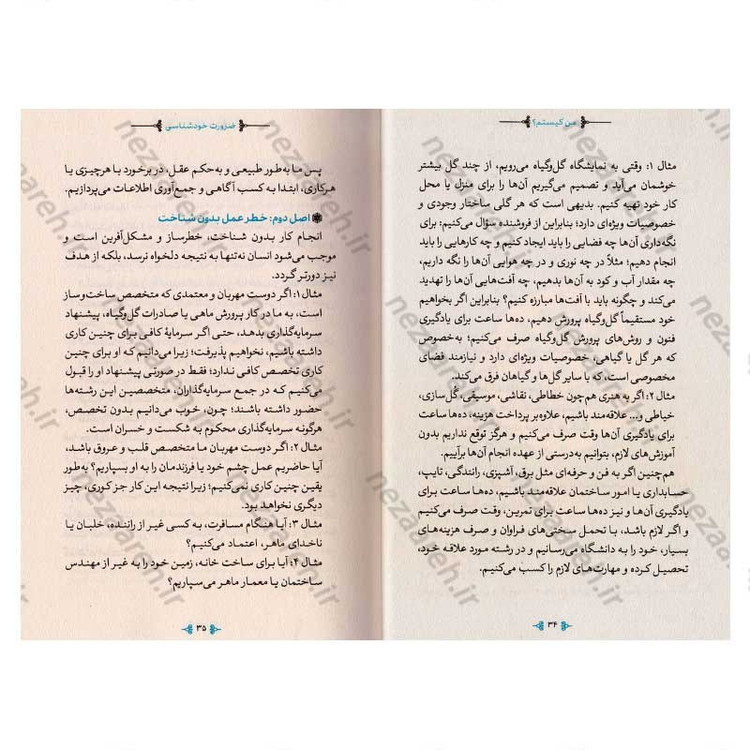 من کیستم؟
مثال ۱: وقتی به نمایشگاه گل‌وگیاه می‌رویم، از چند گل بیشتر
خوشمان می‌آید و تصمیم می‌گیریم آن‌ها را برای منزل یا محل
کار خود تهیه کنیم. بدیهی است که هر گلی ساختار وجودی و
خصوصیات ویژه‌ای دارد؛ بنابراین از فروشنده سؤال می‌کنیم: برای
نگه‌داری آن‌ها چه فضایی را باید ایجاد کنیم و چه کارهایی را باید
انجام دهیم؛ مثلاً در چه نوری و در چه هوایی آن‌ها را نگه داریم،
چه مقدار آب و کود به آن‌ها بدهیم، چه آفت‌هایی آن‌ها را تهدید
می‌کند و چگونه باید با آفت‌ها مبارزه کنیم؟ بنابراین اگر بخواهیم
خود مستقیماً گل‌وگیاه پرورش دهیم، ده‌ها ساعت برای یادگیری
فنون و روش‌های پرورش گل‌وگیاه صرف می‌کنیم؛ به‌خصوص
که هر گل یا گیاهی، خصوصیات ویژه‌ای دارد و نیازمند فضای
مخصوصی است، که با سایر گل‌ها و گیاهان فرق می‌کند.
مثال ۲: اگر به هنری هم‌چون خطاطی، نقاشی، موسیقی، گل‌سازی،
خیاطی و... علاقه‌مند باشیم، علاوه‌بر پرداخت هزینه، ده‌ها ساعت
برای یادگیری آن‌ها وقت صرف می‌کنیم و هرگز توقع نداریم بدون
آموزش‌های لازم، بتوانیم به‌درستی از عهده انجام آن‌ها برآییم.
هم‌چنین اگر به فن و حرفه‌ای مثل برق، آشپزی، رانندگی، تایپ،
حسابداری یا امور ساختمان علاقه‌مند باشیم، ده‌ها ساعت برای
یادگیری آن‌ها و نیز ده‌ها ساعت برای تمرین، وقت صرف می‌کنیم
و اگر لازم باشد، با تحمل سختی‌های فراوان و صرف هزینه‌های
بسیار، خود را به دانشگاه می‌رسانیم و در رشته مورد علاقه خود،
تحصیل کرده و مهارت‌های لازم را کسب می‌کنیم.
۳۴
ضرورت خودشناسی
پس ما به‌طور طبیعی و به‌حکم عقل، در برخورد با هرچیزی یا
هرکاری، ابتدا به کسب آگاهی و جمع‌آوری اطلاعات می‌پردازیم.
اصل دوم: خطر عمل بدون شناخت
انجام کار بدون شناخت، خطرساز و مشکل‌آفرین است و
موجب می‌شود انسان نه‌تنها به نتیجه دلخواه نرسد، بلکه از هدف
نیز دورتر گردد.
مثال ۱: اگر دوست مهربان و معتمدی که متخصص ساخت‌وساز
است، به ما در کار پرورش ماهی یا صادرات گل‌وگیاه، پیشنهاد
سرمایه‌گذاری بدهد، حتی اگر سرمایهٔ کافی برای چنین کاری
داشته باشیم، نخواهیم پذیرفت؛ زیرا می‌دانیم که او برای چنین
کاری تخصص کافی ندارد؛ فقط در صورتی پیشنهاد او را قبول
می‌کنیم که در جمع سرمایه‌گذاران، متخصصین این رشته‌ها
حضور داشته باشند؛ چون، خوب می‌دانیم بدون تخصص،
هرگونه سرمایه‌گذاری محکوم به شکست و خسران است.
مثال ۲: اگر دوست مهربان ما متخصص قلب و عروق باشد،
آیا حاضریم عمل چشم خود یا فرزندمان را به او بسپاریم؟ به‌طور
یقین چنین کاری نمی‌کنیم؛ زیرا نتیجه این کار جز کوری، چیز
دیگری نخواهد بود.
مثال ۳: آیا هنگام مسافرت، به کسی غیر از راننده، خلبان یا
ناخدای ماهر، اعتماد می‌کنیم؟
مثال ۴: آیا برای ساخت خانه، زمین خود را به غیر از مهندس
ساختمان یا معمار ماهر می‌سپاریم؟
۳۵
nezaareh.ir